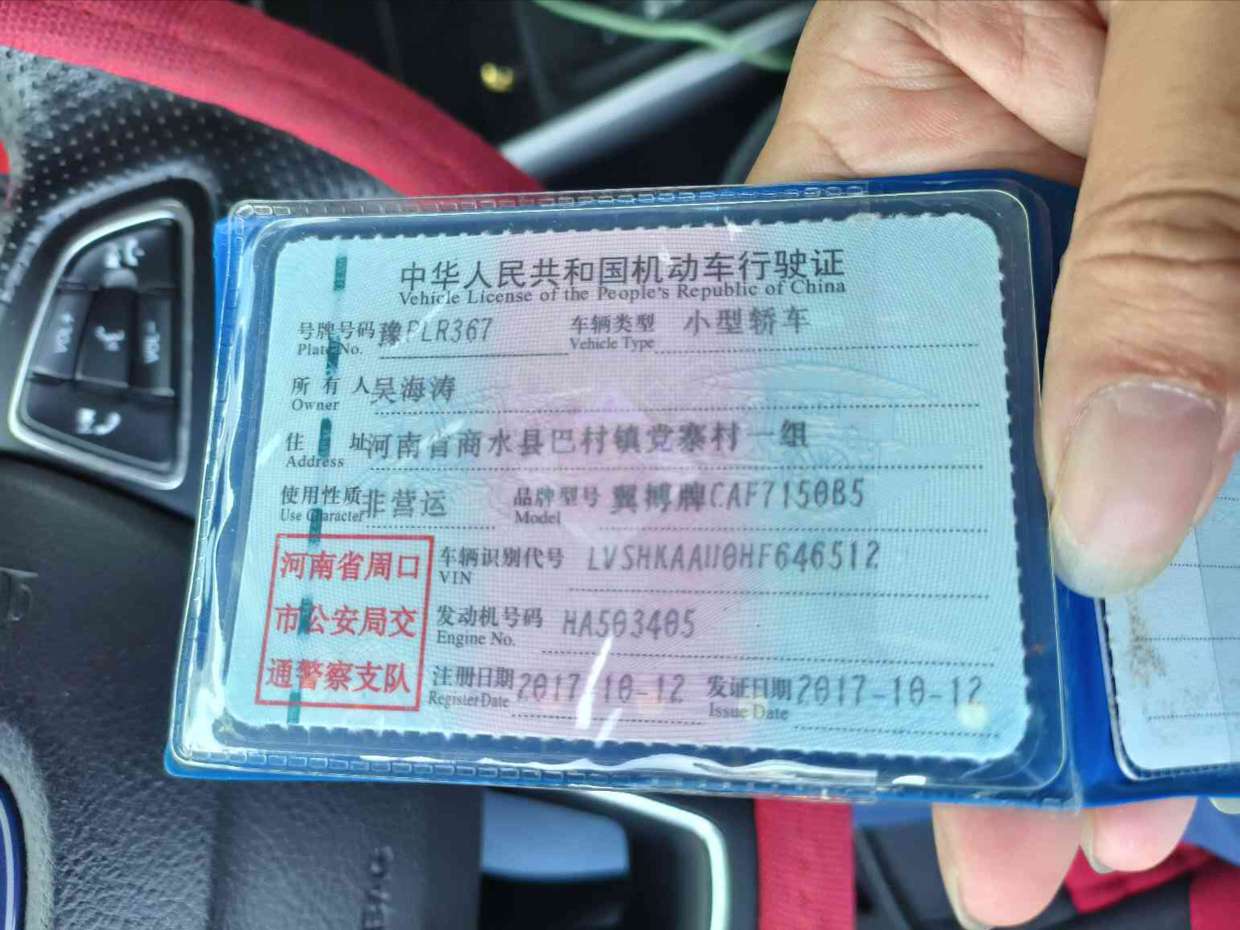 中华人民共和国机动车行驶证
Vehicle License of the People's Republic of China
号牌号码 豫PLR367 车辆类型 小型轿车
Plate No. Vehicle Type
所有人 吴海涛
Owner
住址 河南省商水县巴村镇党寨村一组
Address
使用性质 非营运 品牌型号 翼搏牌CAF7150B5
Use Character Model
河南省周口
市公安局交
通警察支队
车辆识别代号 LVSHKAAU0HF646512
VIN
发动机号码 HA503405
Engine No.
注册日期 2017-10-12 发证日期 2017-10-12
Register Date Issue Date
VOL+
VOL-